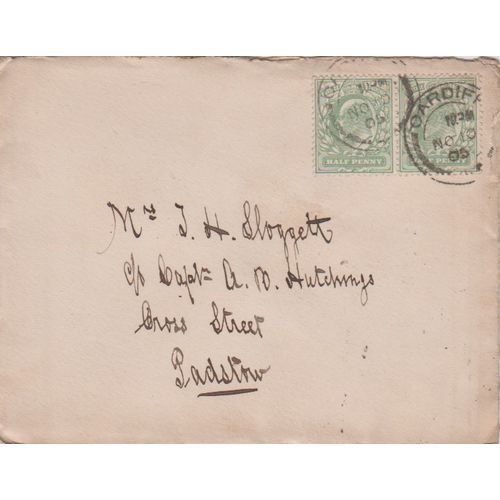 CARDIFF
NO 10
05
HALF PENNY HALF PENNY
Mrs J. H. Sloggett
c/o Captn A. W. Hutchings
Cross Street
Padstow